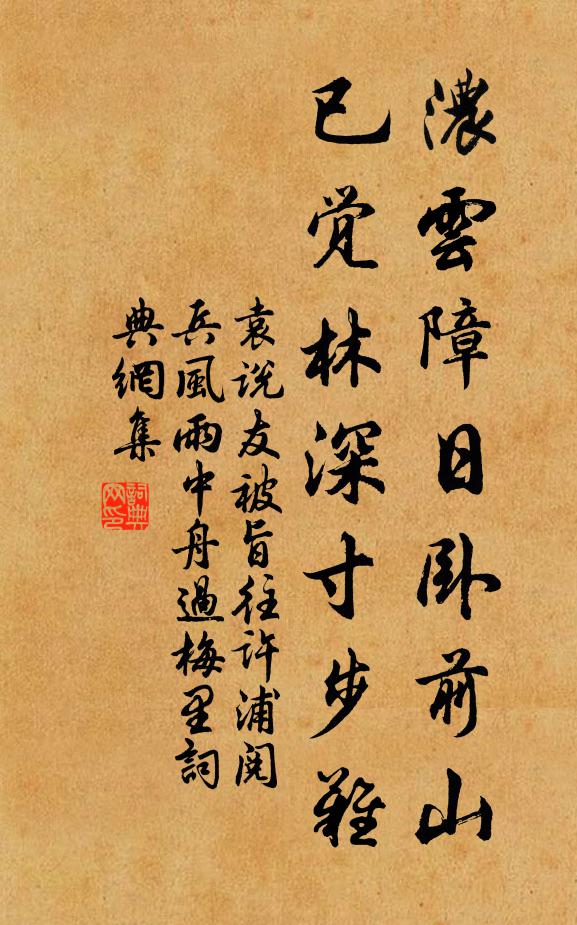 濃雲障日卧前山
已覚林深寸步難
袁説友被旨往許浦閱
兵風雨中舟過梅里詞
典網集
詞典
網印